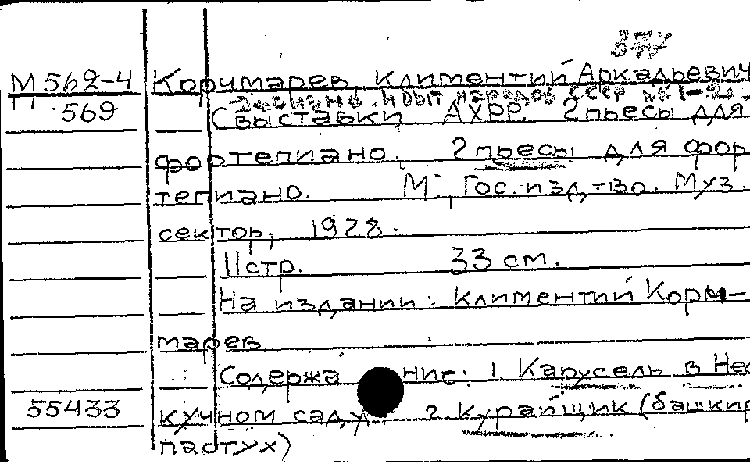 377
М 562-4 Корчмарев, Климентий Аркадьевич
П 569
С выставки АХРР. 2 пьесы для
фортепиано. 2 пьесы для фор
тепиано. М., Гос. изд-во. Муз.
сектор, 1928.
11 стр. 33 см.
На издании: Климентий Корч-
марев
Содержание: 1 Карусель в Нес
55433 кучном саду 2. Курайщик (башкир
пастух)